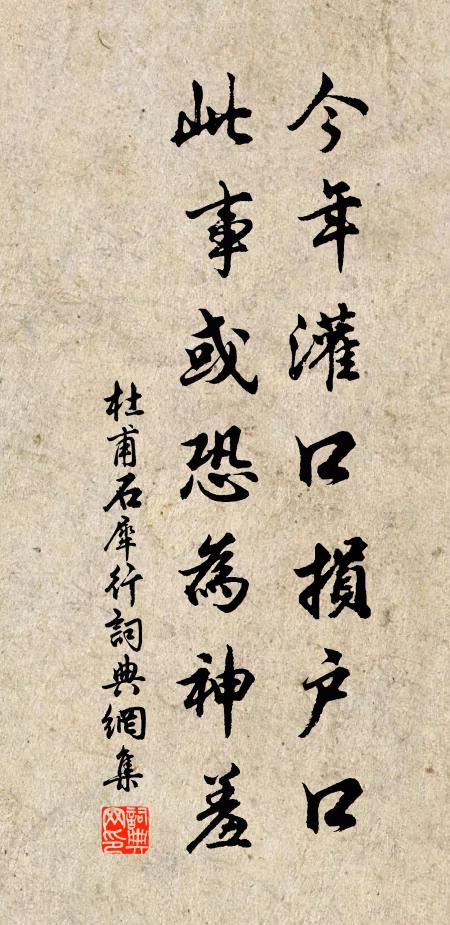 今年灌口損户口
此事或恐為神羞
杜甫石犀行詞典網集
詞典网印